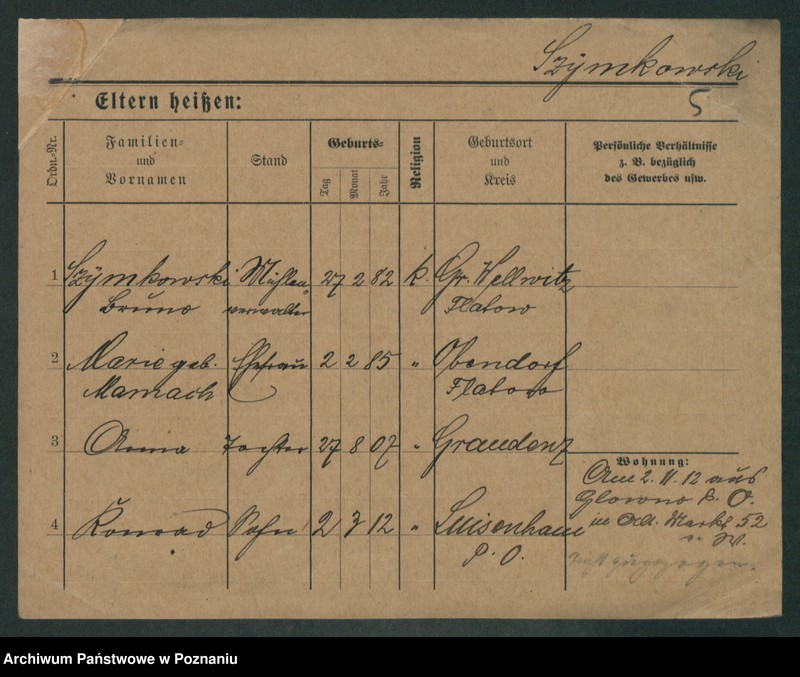 Szymkowski
5
Eltern heißen:
Ordn.-Nr.
Familien- und Vornamen
Stand
Geburts-
Tag
Monat
Jahr
Religion
Geburtsort und Kreis
Persönliche Verhältnisse
z. B. bezüglich
des Gewerbes usw.
1 Szymkowski Mühlen- 27 2 82 k. Gr. Wellwitz
Bruno verwalter Flatow
2 Marie geb. Ehefrau 2 2 85 " Obendorf
Mamach Flatow
3 Anna Tochter 27 8 07 " Graudenz
4 Konrad Sohn 2 3 12 " Luisenhain
P. O.
Wohnung:
Am 2. 11. 12 aus
Glowno P. O.
in Alt. Markt 52
v. W.
nicht zugezogen.
Archiwum Państwowe w Poznaniu